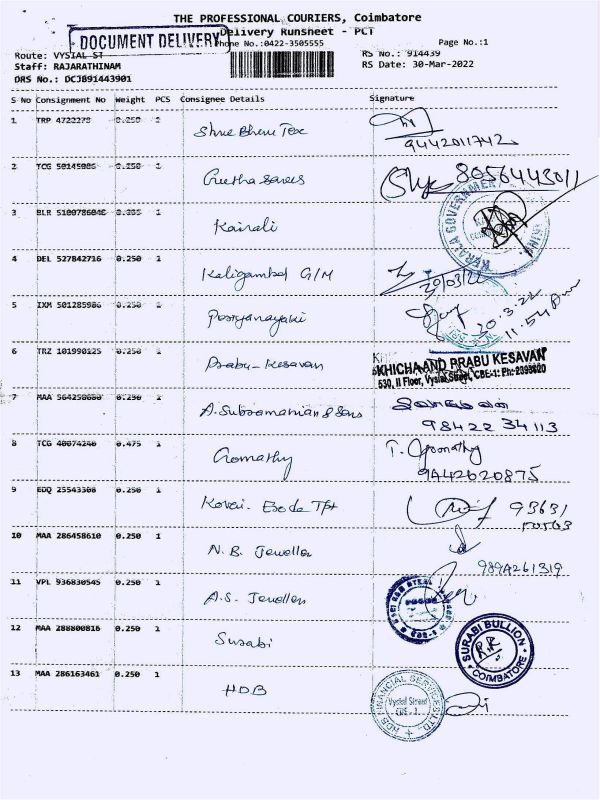 THE PROFESSIONAL COURIERS, Coimbatore
Delivery Runsheet - PCT
DOCUMENT DELIVERY
Phone No.:0422-3505555
Page No.:1
Route: VYSIAL ST
RS No.: 914439
Staff: RAJARATHINAM
RS Date: 30-Mar-2022
DRS No.: DCJB91443901
S No Consignment No Weight PCS Consignee Details Signature
1 TRP 4722279 0.250 1 Shree Bhenu Tex
9442011742
2 TCG 50145086 0.250 1 Geetha Sarees 8056443011
3 BLR 5100786048 Kairali
KERALA GOVERNMENT
4 DEL 527842716 0.250 1 Kaligambal G/M
30/03/22
5 IXM 501285986 0.250 1 Periyanayaki
30.3.22
11.54 Am
6 TRZ 101990125 0.250 1 Prabu-Kesavan
KHICHA AND PRABU KESAVAN
530, II Floor, Vysial Street, CBE-1: Ph:2398820
7 MAA 0.250 1 A. Subramanian & Sons
98422 34113
8 TCG 48074240 0.475 1 Gomathy T. Gomathy
9442620875
9 EDQ 25543308 0.250 1 Kovai- Erode Tpt 93631
10 MAA 286458610 0.250 1 N.B. Jeweller
9894261319
11 VPL 936830545 0.250 1 A.S. Jewellers
12 MAA 288800816 0.250 1 Surabi
SURABI BULLION
COIMBATORE
13 MAA 286163461 0.250 1 HDB
HDB FINANCIAL SERVICES LTD.
Vysial Street
CBE - 1